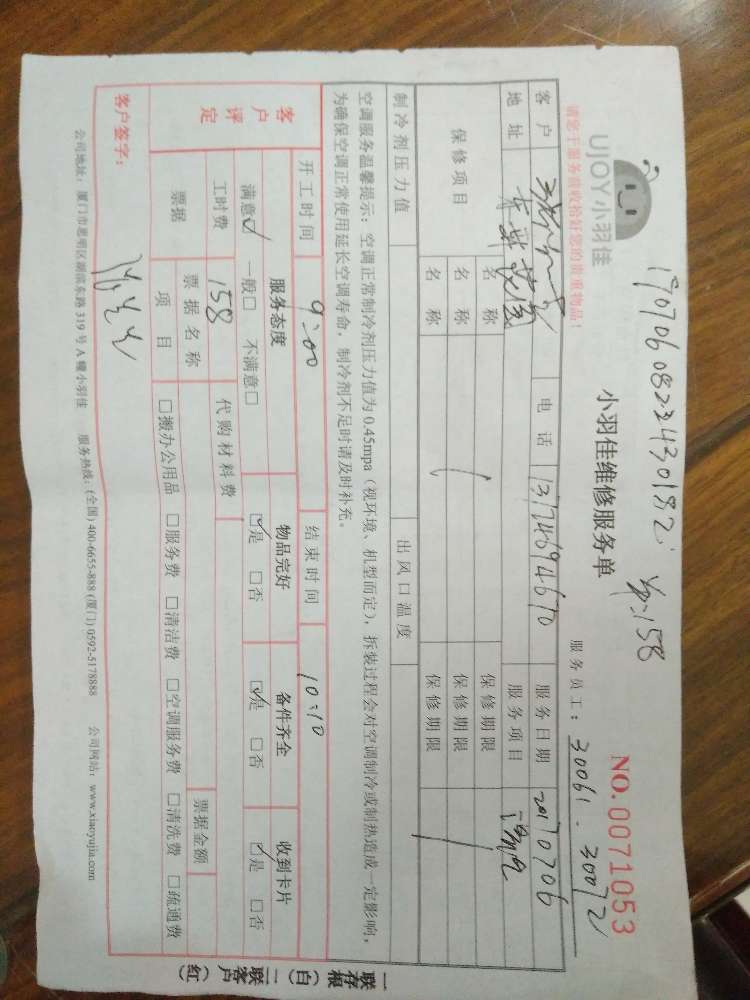 1707060822430182
单:158
UJOY小羽佳
请您于服务前收拾好您的贵重物品!
小羽佳维修服务单
NO.0071053
服务员工: 30061. 30072
客户 电话 13174694670 服务日期 20170706
地址 服务项目
保修项目 名称 保修期限
名称 保修期限
名称 保修期限
制冷剂压力值 出风口温度
空调服务温馨提示: 空调正常制冷剂压力值为0.45mpa (视环境、机型而定), 拆装过程会对空调制冷或制热造成一定影响,
为确保空调正常使用延长空调寿命, 制冷剂不足时请及时补充。
开工时间 9:00 结束时间 10:10
客户评定 服务态度 物品完好 备件齐全 收到卡片
满意☑ 一般□ 不满意□ ☑是 □否 ☑是 □否 ☑是 □否
工时费 158 代购材料费
票据 票据名称 票据金额
项目 □搬办公用品 □服务费 □清洁费 □空调服务费 □清洗费 □疏通费
客户签字:
公司地址: 厦门市思明区湖滨东路319号A幢小羽佳 服务热线: (全国) 400-6655-888 (厦门) 0592-5178888 公司网站: www.xiaoyujia.com
一联存根(白) 二联客户(红)